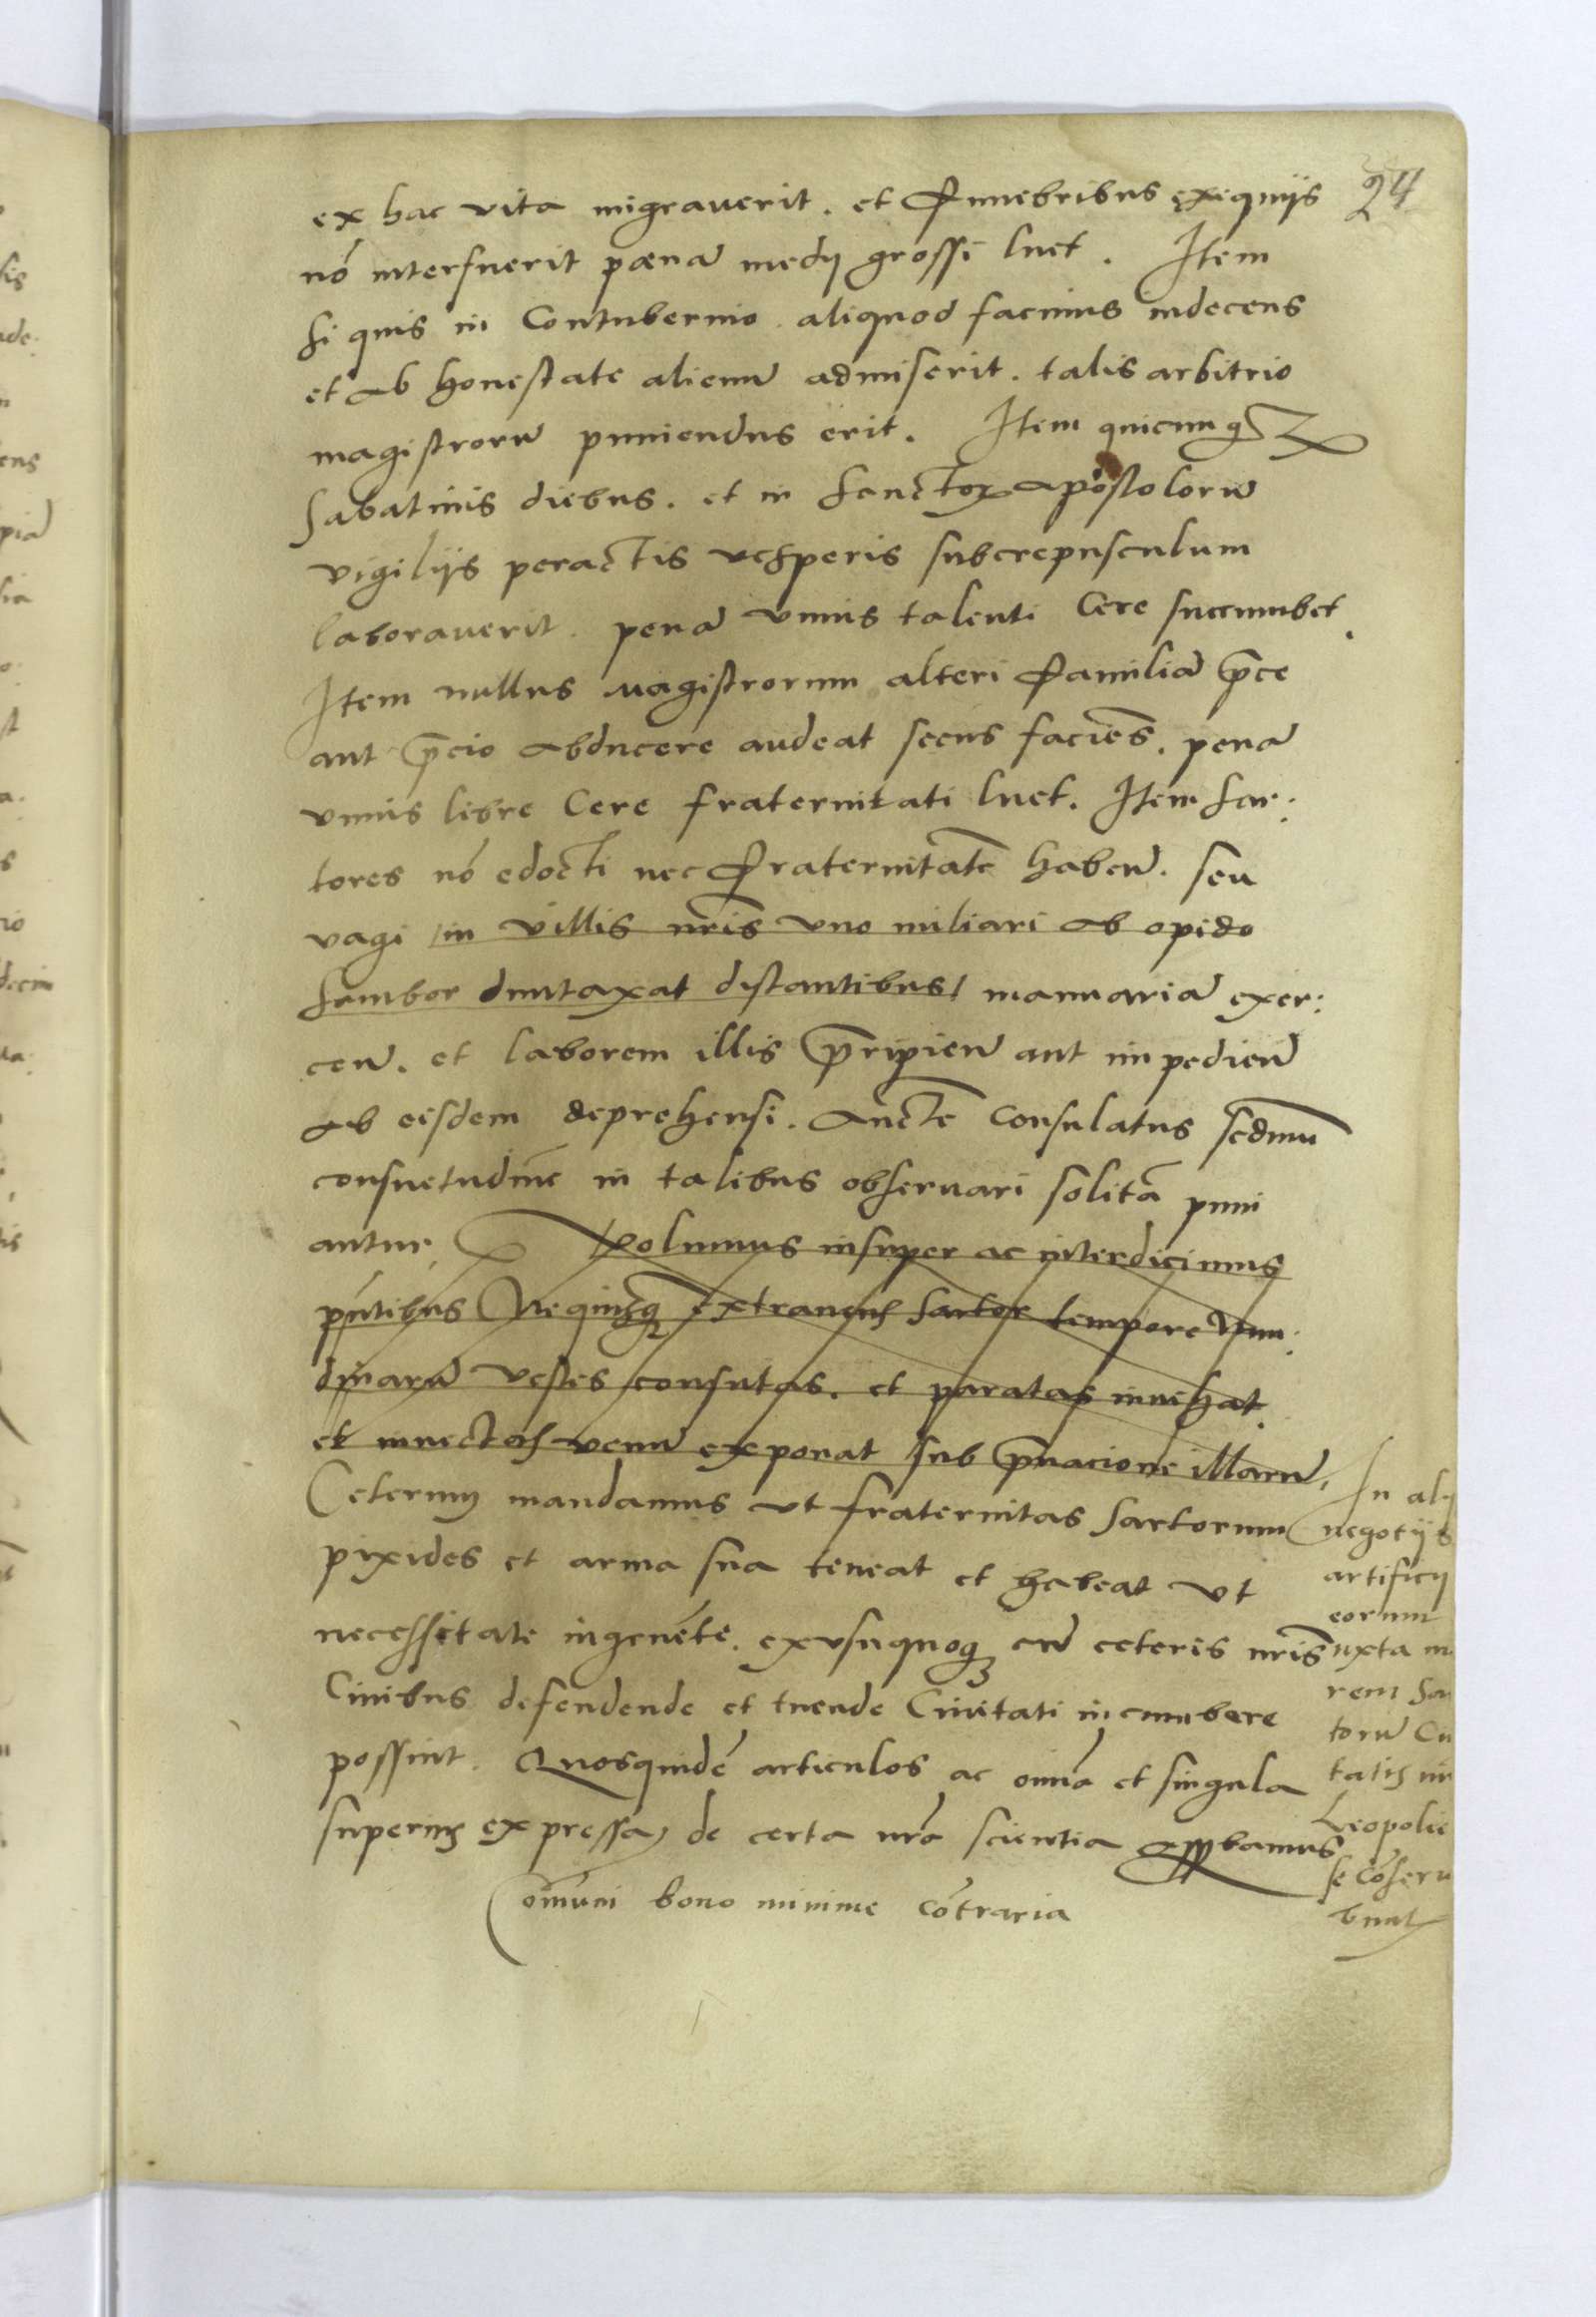 24
ex hac vita migraverit. et Funebribus exequijs
nō interfuerit pænā medij grossi luet. Item
si quis in Contubernio aliquod facinus indecens
et ab honestate alienū admiserit. talis arbitrio
magistrorū puniendus erit. Item quicunq
Sabatinis diebus. et in sanctoꝝ apostolorū
vigilijs peractis vesperis subcrepusculum
laboraverit. penā vnius talenti Cere succumbet.
Item nullus Magistrorum alteri Familiā p̄ce
aut p̄cio abducere audeat secus faciēs. penā
vnius libre Cere fraternitati luet. Item sar:
tores nō edocti nec Fraternitatē habeń. seu
vagi /in villis nr̄is vno miliari ab opido
Sambor duntaxat distantibus/ manuariā exer:
ceń. et laborem illis p̄ripień aut impedień
ab eisdem deprehensi. Aucte Consulatus secdmū
consuetudinē in talibus observari solitā puni
antur. Volumus insuper ac interdicimus
pn̄tibus Ne quisq̃ extraneus sartor tempore Nun:
dinarū vestes consutas. et paratas invehat.
et invectas venū exponat sub p̄vacione illarū.
Ceterum mandamus vt fraternitas Sartorum
pixides et arma sua teneat et habeat vt
necessitate ingruēte. ex vsu quoqꝫ cū ceteris nr̄is
Civibus defendende et tuende Civitati incumbere
possint. Quosquidē articulos ac omīa et singula
superius expressa, de certa nr̄a scientia approbamus
Comuni bono minime cōtraria
In alij
negotijs
artificij
eorum
iuxta m
rem Sar
torū Ci
tatis nr
Leopolie
se cōserv
bunt